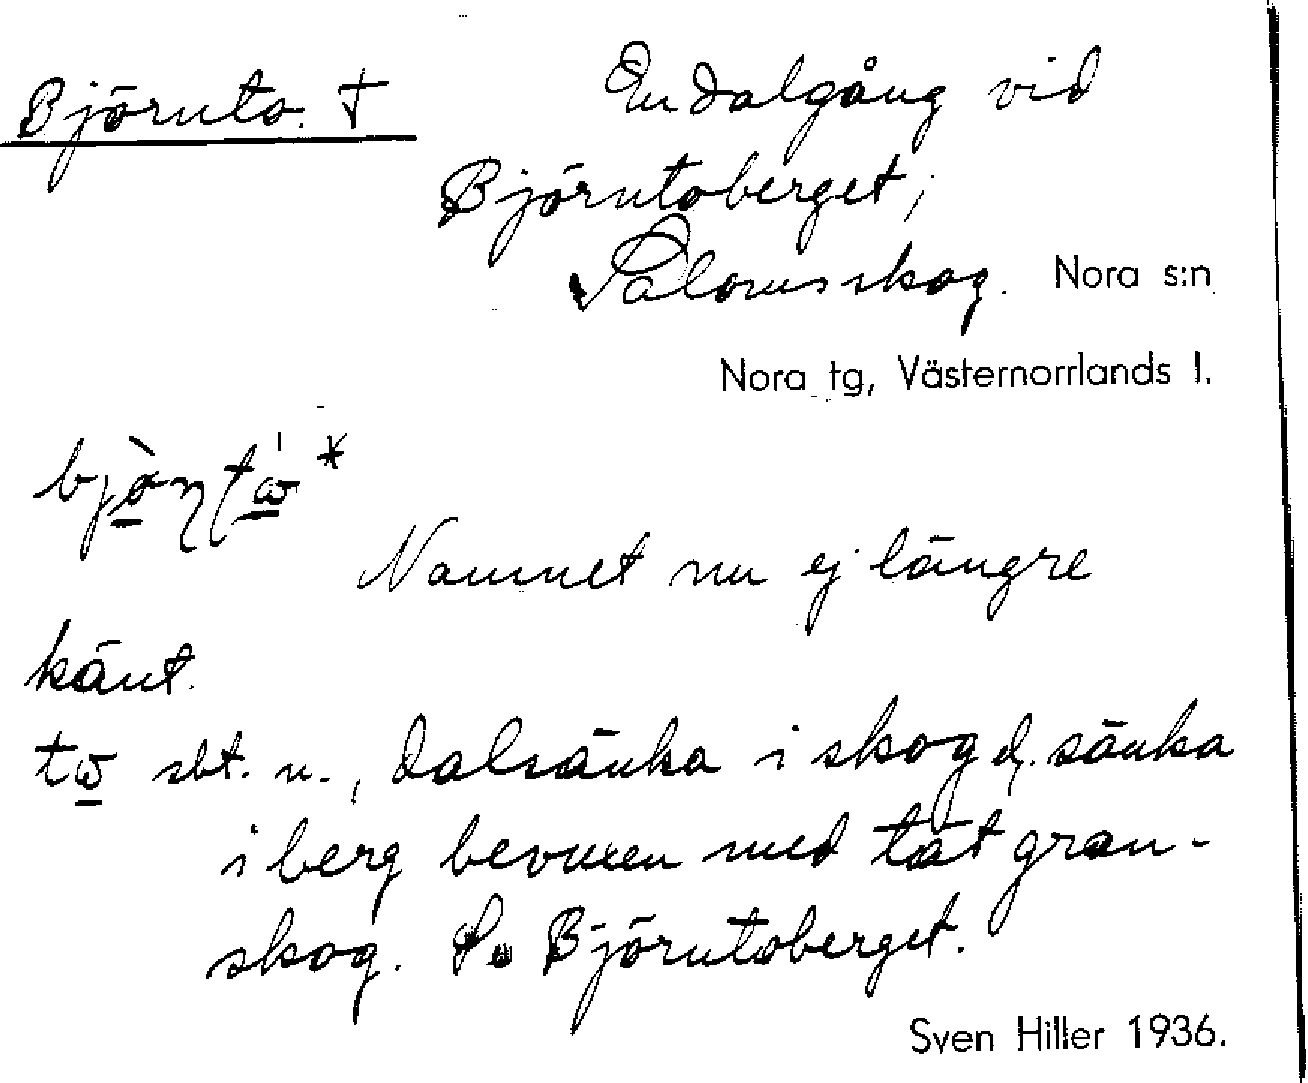 Björnto. † En dalgång vid
Björntoberget,
Salomsskog. Nora s:n
Nora tg, Västernorrlands l.
Namnet nu ej längre
känt.
sbt. n., dalsänka i skog d. sänka
i berg bevuxen med tät gran-
skog. S. Björntoberget.
Sven Hiller 1936.